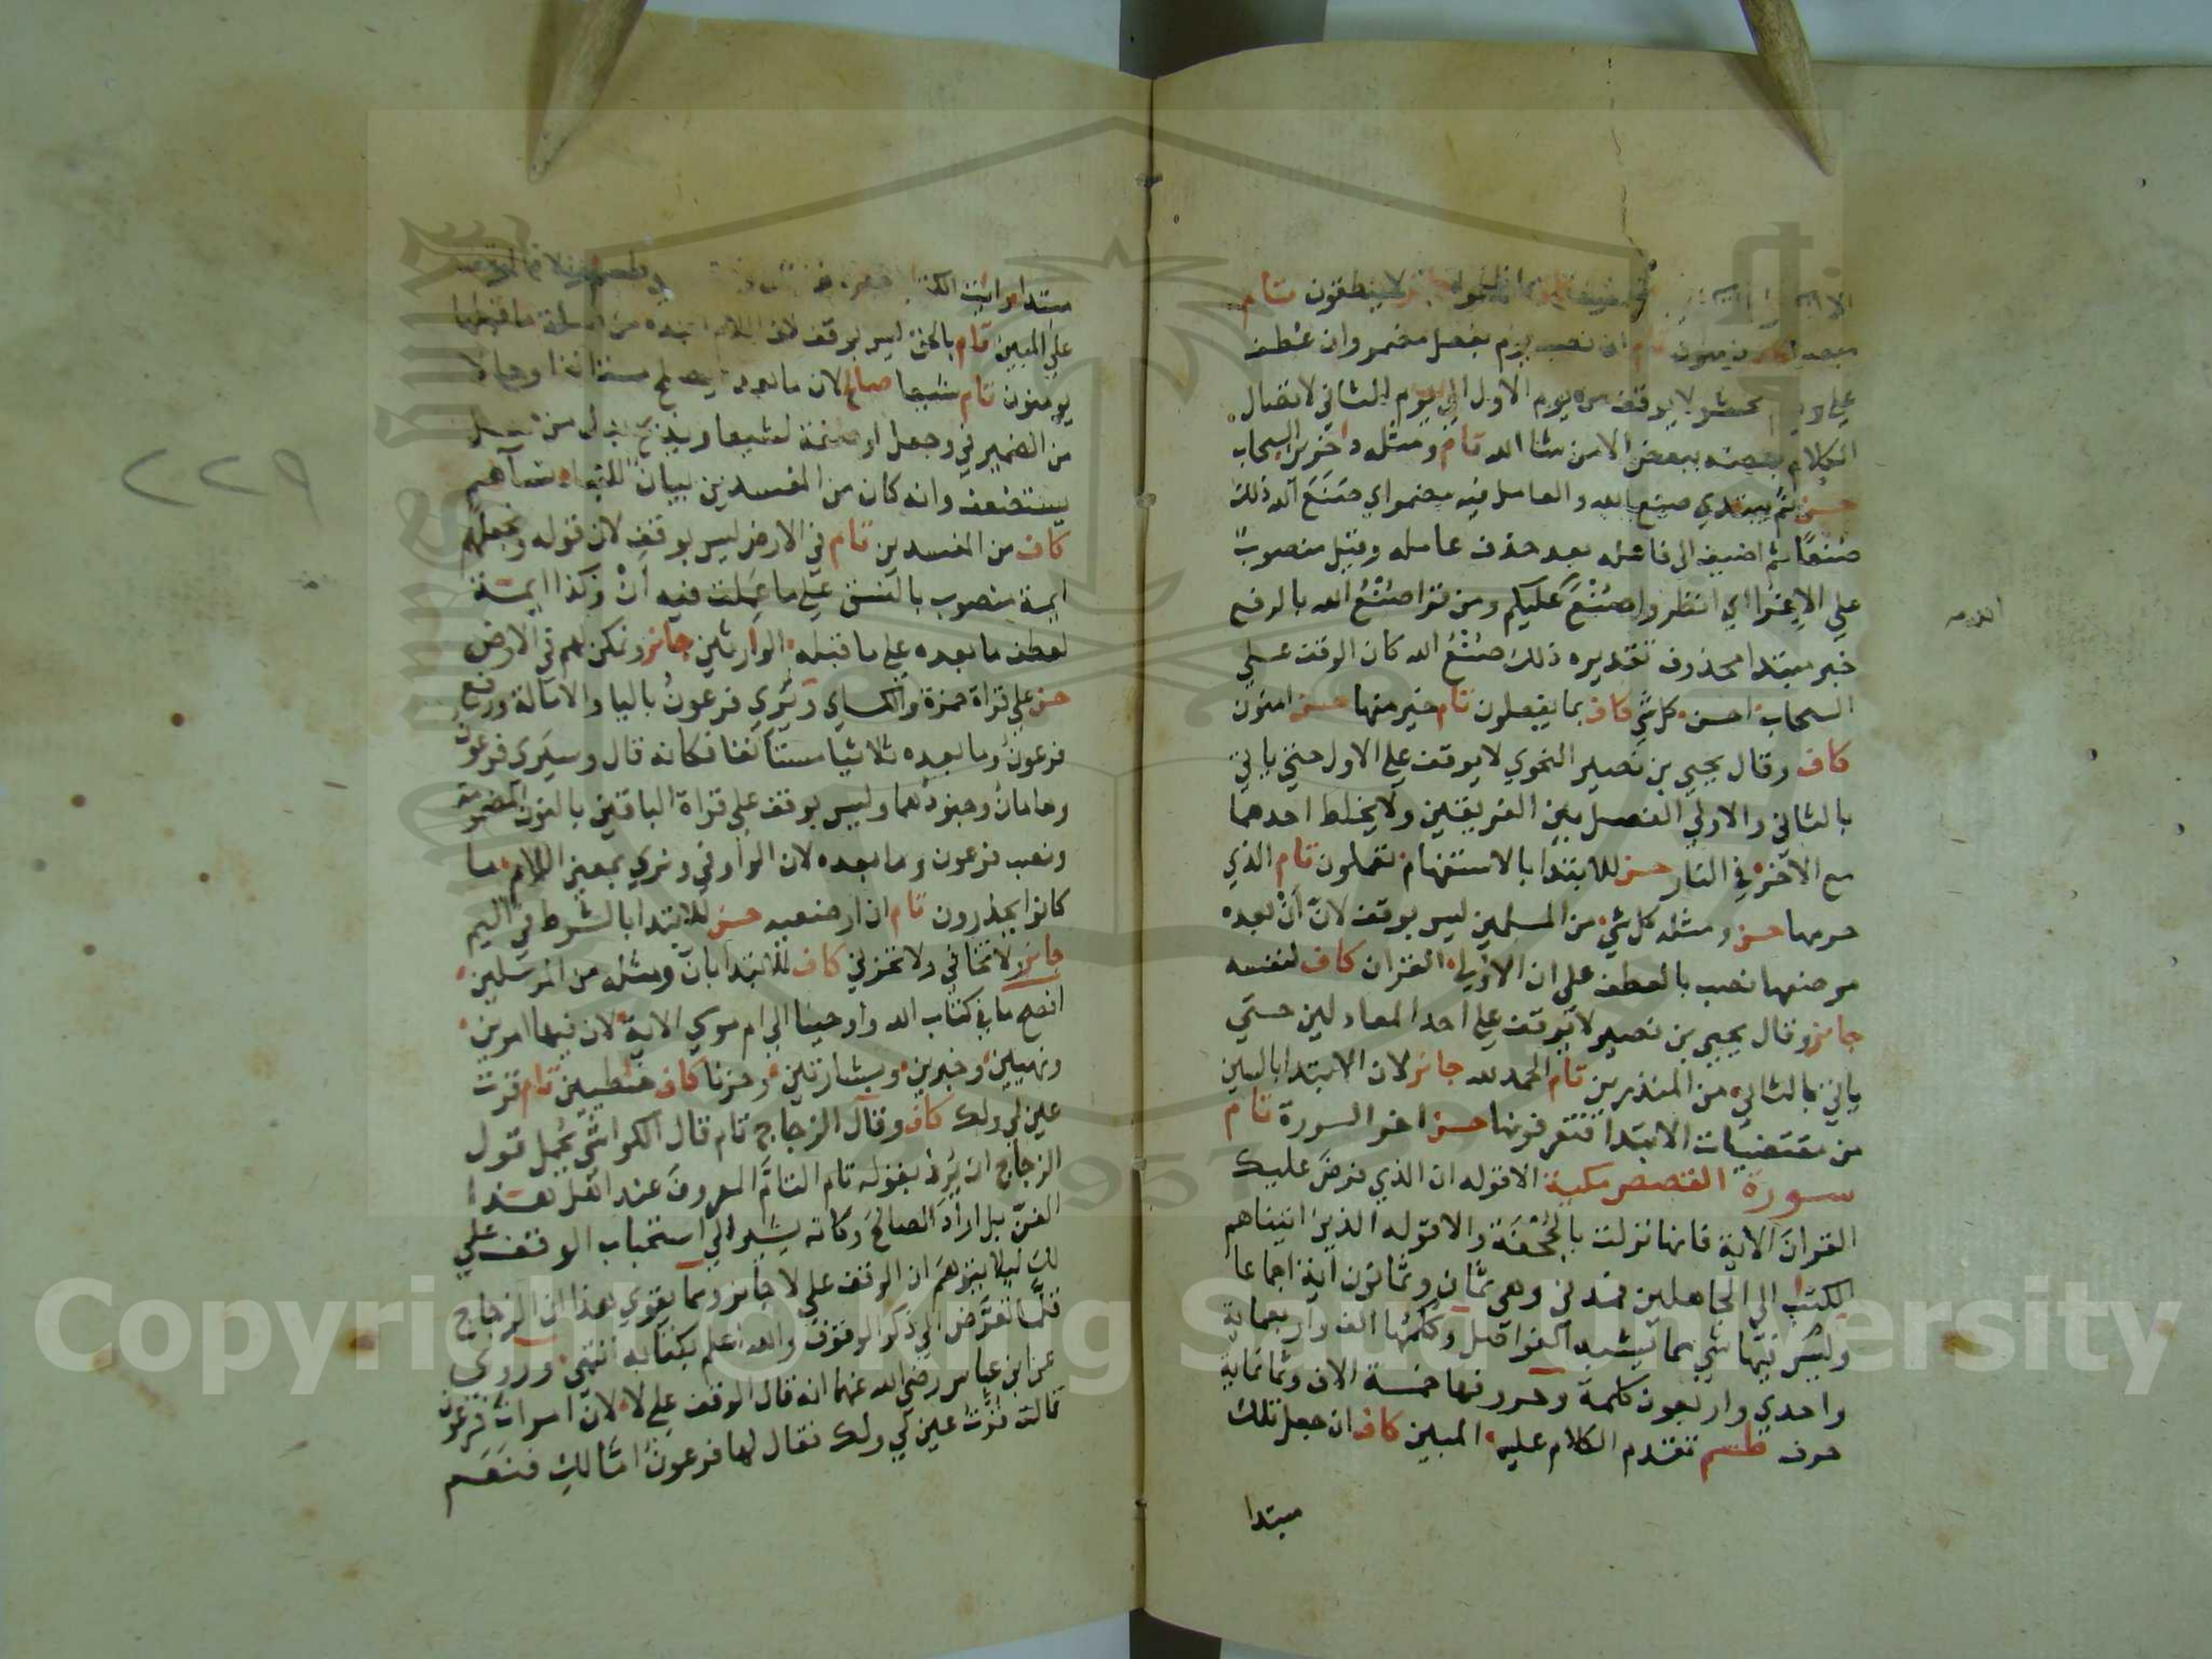 لا ينطقون تام
مبصرا يومنون تام ان نصب يوم بفعل مضمر وان عطف
على ويوم نحشر لا يوقف من يوم الاول الى يوم الثاني لاتصال
الكلام بعضه ببعض الا من شا الله تام ومثله داخرين السحاب
حسن ثم يبتدي صنع الله والعامل فيه مضمر اي صنع الله ذلك
صنعا ثم اضيف الى فاعله بعد حذف عامله وقيل منصوب
على الاغرا اي انظروا صنع عليكم ومن قرا صنع الله بالرفع
خبر مبتدا محذوف تقديره ذلك صنع الله كان الوقف على
السحاب احسن كل شي كاف بما يفعلون تام خير منها حسن امنون
كاف وقال يحيى بن نصير النحوي لا يوقف على الاول حتى ياتي
بالثاني والاولى الفصل بين الفريقين ولا يخلط احدهما
مع الاخر في النار حسن للابتدا بالاستفهام تعملون تام الذي
حرمها حسن ومثله كل شي من المسلمين ليس بوقف لان أن بعده
موضعها نصب بالعطف على ان الاولى القران كاف لنفسه
جايز وقال يحيى بن نصير لا يوقف على احد المعادلين حتى
ياتي بالثاني من المنذرين تام الحمد لله جايز لان الابتدا بالسين
من مقتضيات الابتدا فتعرفونها حسن اخر السورة تام
سورة القصص مكية الا قوله ان الذي فرض عليك
القران الاية فانها نزلت بالجحفة والا قوله الذين اتيناهم
الكتب الى الجاهلين فمدني وهي ثمان وثمانون اية اجماعا
وليس فيها شي مما يشبه الفواصل وكلمها الف واربعماية
واحدى واربعون كلمة وحروفها خمسة الاف وثمانماية
حرف طسم تقدم الكلام عليه المبين كاف ان جعل تلك
مبتدا
مبتدا وايت الكتاب
على المبين تام بالحق ليس بوقف لان اللام بعده من صلة ما قبلها
يومنون تام شيعا صالح لان ما بعده يصلح مستانفا وحالا
من الضمير في وجعل او صفة لشيعا ويذبح بدل من
يستضعف وانه كان من المفسدين بيان للنبا نساهم
كاف من المفسدين تام في الارض ليس بوقف لان قوله ونجعلهم
ايمة منصوب بالنسق على ما عملت فيه أن وكذا ايمة
لعطف ما بعده على ما قبله الوارثين جايز ونمكن لهم في الارض
حسن على قراة حمزة والكساي ويرى فرعون باليا والامالة ورفع
فرعون وما بعده ثلاثيا مستانفا فكانه قال وسيرى فرعون
وهامان وجنودهما وليس بوقف على قراة الباقين بالنون المضمومة
ونصب فرعون وما بعده لان الواو في ونري بمعنى اللام ما
كانوا يحذرون تام ان ارضعيه حسن للابتدا بالشرط في اليم
جايز لا تخافي ولا تحزني كاف للابتدا بان ومثله من المرسلين
افصح ما في كتاب الله واوحينا الى ام موسى الاية لان فيها امرين
ونهيين وخبرين وبشارتين وحزنا كاف خطيين تام قرت
عين لي ولك كاف وقال الزجاج تام قال الكواشي يحمل قول
الزجاج انه يرد بقوله تام التام المعروف عند اهل هذا
الفن بل اراد الصالح وكانه يشير الى استحباب الوقف على
لك ليلا يتوهم ان الوقف على لا جايز ومما يقوي هذا ان الزجاج
قلما تعرض الى ذكر الوقوف والله اعلم بكتابه انتهى وروي
عن ابن عباس رضي الله عنهما انه قال الوقف على لا لان امرات فرعون
قالت قرت عين لي ولك فقال لها فرعون اما لك فنعم
٢٢٩
Copyright © King Saud University
1957